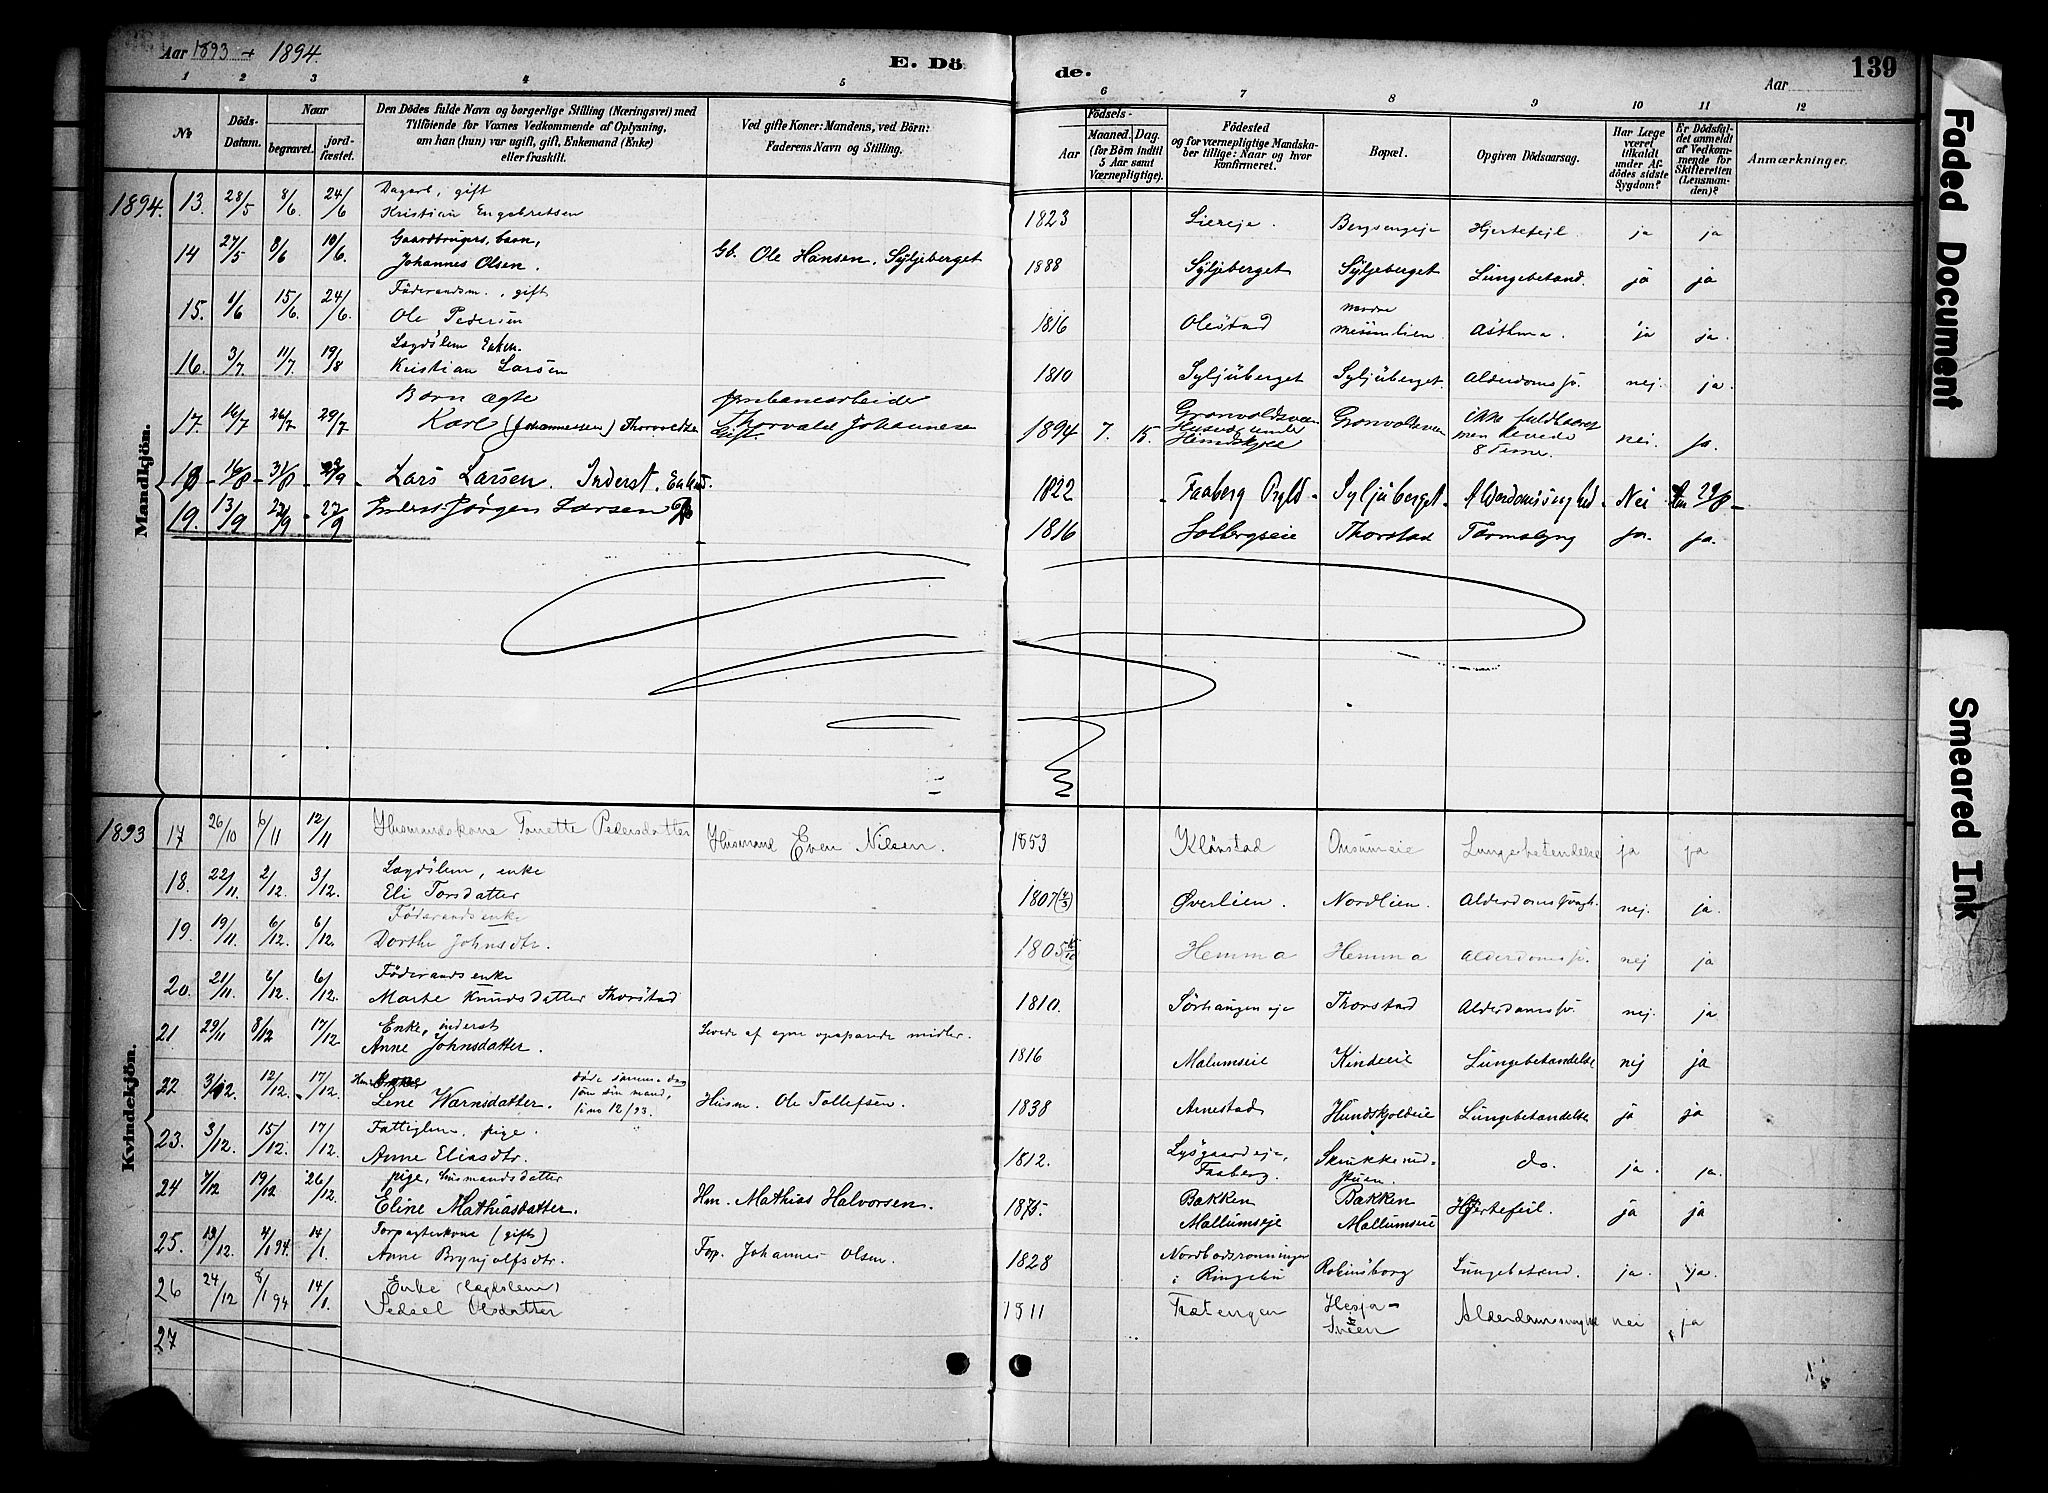 Aar 1893 + 1894.
E. Dö
de.
Aar
139
1 2 3 4 5 6 7 8 9 10 11 12
No
Döds-Datum.
Naar
begravet.
jord-fæstet.
Den Dödes fulde Navn og borgerlige Stilling (Næringsvei) med
Tilföiende for Voxnes Vedkommende af Oplysning,
om han (hun) var ugift, gift, Enkemand (Enke)
eller fraskilt.
Ved gifte Koner: Mandens, ved Börn:
Faderens Navn og Stilling.
Födsels-
Aar
Maaned. Dag.
(for Börn indtil
5 Aar samt
Værnepligtige).
Födested
og for værnepligtige Mandska-
ber tillige: Naar og hvor
konfirmeret.
Bopæl.
Opgiven Dödsaarsag.
Har Læge
været
tilkaldt
under Af-
dödes sidste
Sygdom?
Er Dödsfal-
det anmeldt
af Vedkom-
mende for
Skifteretten
(Lensman-
den)?
Anmærkninger.
Mandkjön.
1894. 13. 28/5 8/6. 24/6 Dagarb, gift
Kristian Engebretsen 1823 Liereje. Bergsengeje Hjertefejl. ja ja
14 27/5 8/6 10/6. Gaardbrugers barn,
Johannes Olsen. Gb. Ole Hansen, Syljeberget 1888 Syljeberget Syljeberget Lungebetænd. ja ja
15. 1/6 15/6. 24/6. Föderaadsm., gift
Ole Pedersen 1816 Olestad nordre Asthma. ja ja.
16. 3/7. 11/7. 19/8 Lægdslem Enkem.
Kristian Larsen 1810 Syljuberget Syljuberget. Alderdomssv. nej. ja.
17. 16/7 26/7 29/7 Barn ægte
Karl (Johannessen) Thorvaldsen Jernbanearbeider
Thorvald Johannesen
Gift. 1894 7. 15. Grønvoldsveen
Husmpl. under
Grønvoldsveen ikke fuldbaaret
men levede
8 Timer. nei. ja.
18 16/8 31/8 Lars Larsen. Inderst. Enkem. 1822 Faaberg Prgld Syljuberget Alderdomssvaghed Nei 29/8
19. 13/9 22/9 27/9 Jørgen Larsen 1816 Solbergseie Thorstad Tarmslyng ja. ja.
Kvindekjön.
1893 17 26/10 6/11 12/11 Husmandskone Tonette Pedersdatter Husmand Even Nilsen. 1853 Klövstad Onsumeie Lungebetendelse ja ja
18. 22/11 2/12. 3/12. Lægdslem, enke
Eli Torsdatter 1807 (4/3) Øverlien. Nordlien. Alderdomssvagh. nej. ja.
19. 19/11. 6/12. 6/12. Föderaads enke
Dorthe Johnsdtr. 1805 Hemma Hemma Alderdomssv. nej ja
20. 21/11. 6/12. 6/12. Föderaads enke
Marte Knudsdatter Thorstad 1810. Sörhaugen eje Thorstad Alderdomssv. nej. ja
21 29/11 8/12 17/12. Enke, inderst
Anne Johnsdatter. Levede af egne opsparede midler. 1816 Malumseie Kindeeie Lungebetændelse nej ja
22 3/12. 12/12. 17/12. Hm kone
Lene Warnsdatter. døde samme dag
som sin mand,
12/93. Husm. Ole Tollefsen. 1838 Arnestad Hundskjoldeie Lungebetændelse ja ja
23. 3/12. 15/12. 17/12. Fattiglem, pige.
Anne Eliasdtr. 1812. Lysgaard eje,
Faaberg. do. ja. ja.
24 7/12 19/12 26/12. pige, husmandsdatter
Eline Mathiasdatter. Hm. Mathias Halvorsen. 1875. Bakken
Mallumseje Bakken
Mallumseie Hjertefeil. ja ja
25. 19/12. 4/1 94. 14/1. Torpagterkone (gift)
Anne Brynjolfsdtr. Torp. Johannes Olsen. 1828 Nordbodsrønningen
i Ringebu Robinsborg Lungebetænd. ja. ja.
26 24/12 8/1 94 14/1. Enke (lægdslem)
Sedsel Olsdatter 1811 Trætengen Hesja-
sveen Alderdomssvaghed nei ja
27
Faded Document
Smeared Ink